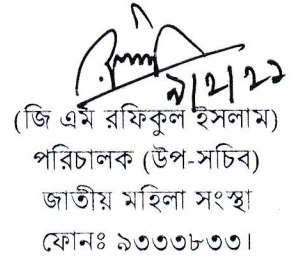 ৯/২/২১
(জি এম রফিকুল ইসলাম)
পরিচালক (উপ-সচিব)
জাতীয় মহিলা সংস্থা
ফোনঃ ৯৩৩৩৮৩৩।